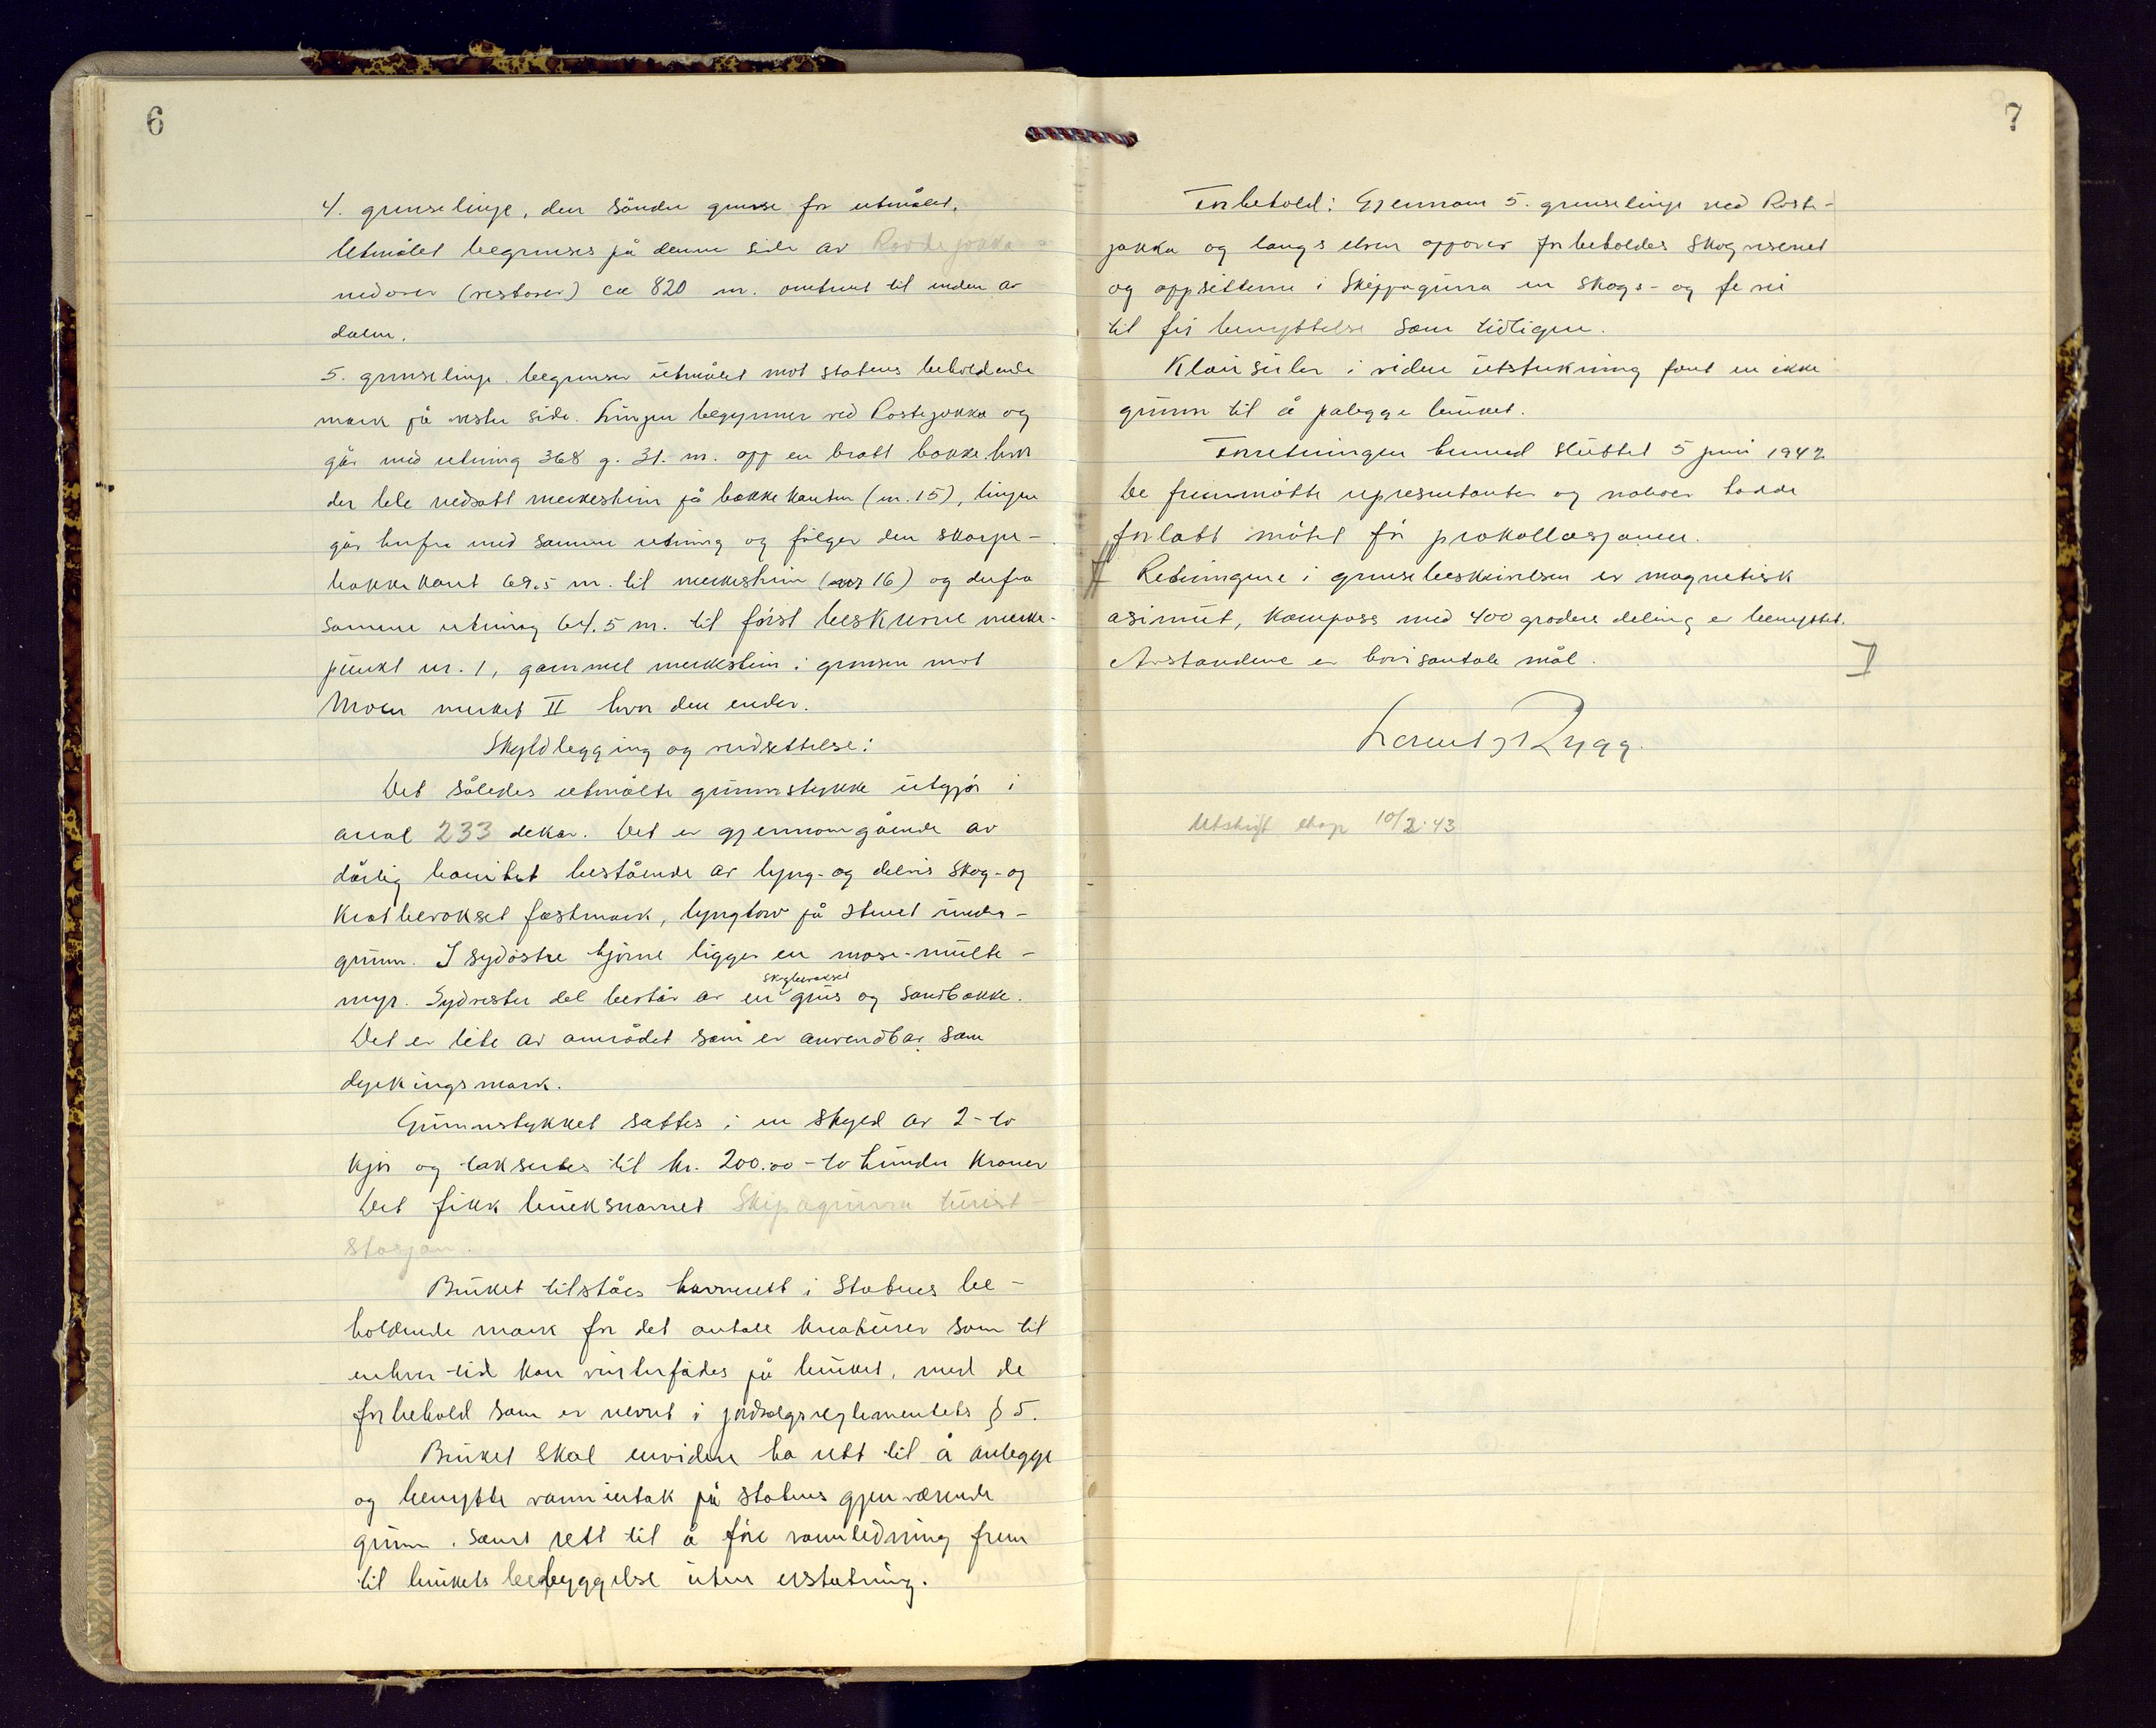 6
4. grenselinje, den söndre grense for utmålet.
Utmålet begrenses på denne side av Rovdejokka
nedover (vestover) ca 820 m. omtrent til enden av
dalen.
5. grenselinje begrenser utmålet mot statens beholdende
mark på vestre side. Linjen begynner ved Rostejokka og
går med retning 368 g. 31. m. opp en bratt bakke hvor
der ble nedsatt merkestein på bakkekanten (nr. 15), linjen
går herfra med samme retning og fölger den skarpe-
bakkekant 69.5 m. til merkestein (nr 16) og derfra
samme retning 64.5 m. til först beskrevne merke-
punkt nr. 1, gammel merkestein i grensen mot
Moen merket II hvor den ender.
Skyldlegging og verdsettelse:
Det således utmålte grunnstykke utgjör i
areal 233 dekar. Det er gjennomgående av
dårlig bonitet bestående av lyng- og delvis skog- og
kratbevokset fastmark, lyngtorv på stenet under-
grunn. I sydöstre hjörne ligger en mose-multe-
myr. Sydvestre del består av en skogbevokset grus og sandbakke.
Det er lite av området som er anvendbar som
dyrkingsmark.
Grunnstykket sattes i en skyld av 2 - to
kjör og takseres til kr. 200.00 - to hundre kroner
Det fikk bruksnavnet Skipagurra turist
stasjon.
Bruket tilståes havnerett i Statens be-
holdende mark for det antall kreaturer som til
enhver tid kan vinterfödes på bruket, med de
forbehold som er nevnt i jordsalgsreglementets § 5.
Bruket skal envidere ha rett til å anlegge
og benytte vanninntak på statens gjenværende
grunn, samt rett til å före vannledning frem
til brukets bebyggelse uten erstatning.
7
Forbehold: Gjennom 5. grenselinje ved Roste-
jokka og langs elven oppover forbeholdes skogvesenet
og oppsitterne i Skippagurra en skogs- og fe vei
til fri benyttelse som tidligere.
Klausuler i videre utstrekning fant en ikke
grunn til å pålegge bruket.
Forretningen hermed sluttet 5 juni 1942
De fremmötte representanter og naboer hadde
forlatt mötet för protokollasjonen.
Retningene i grensebeskrivelsen er magnetisk
asimut, kompass med 400 graders deling er benyttet.
Avstandene er horisontale mål.
Lorentz Rygg.
Utskrift 10/2.43